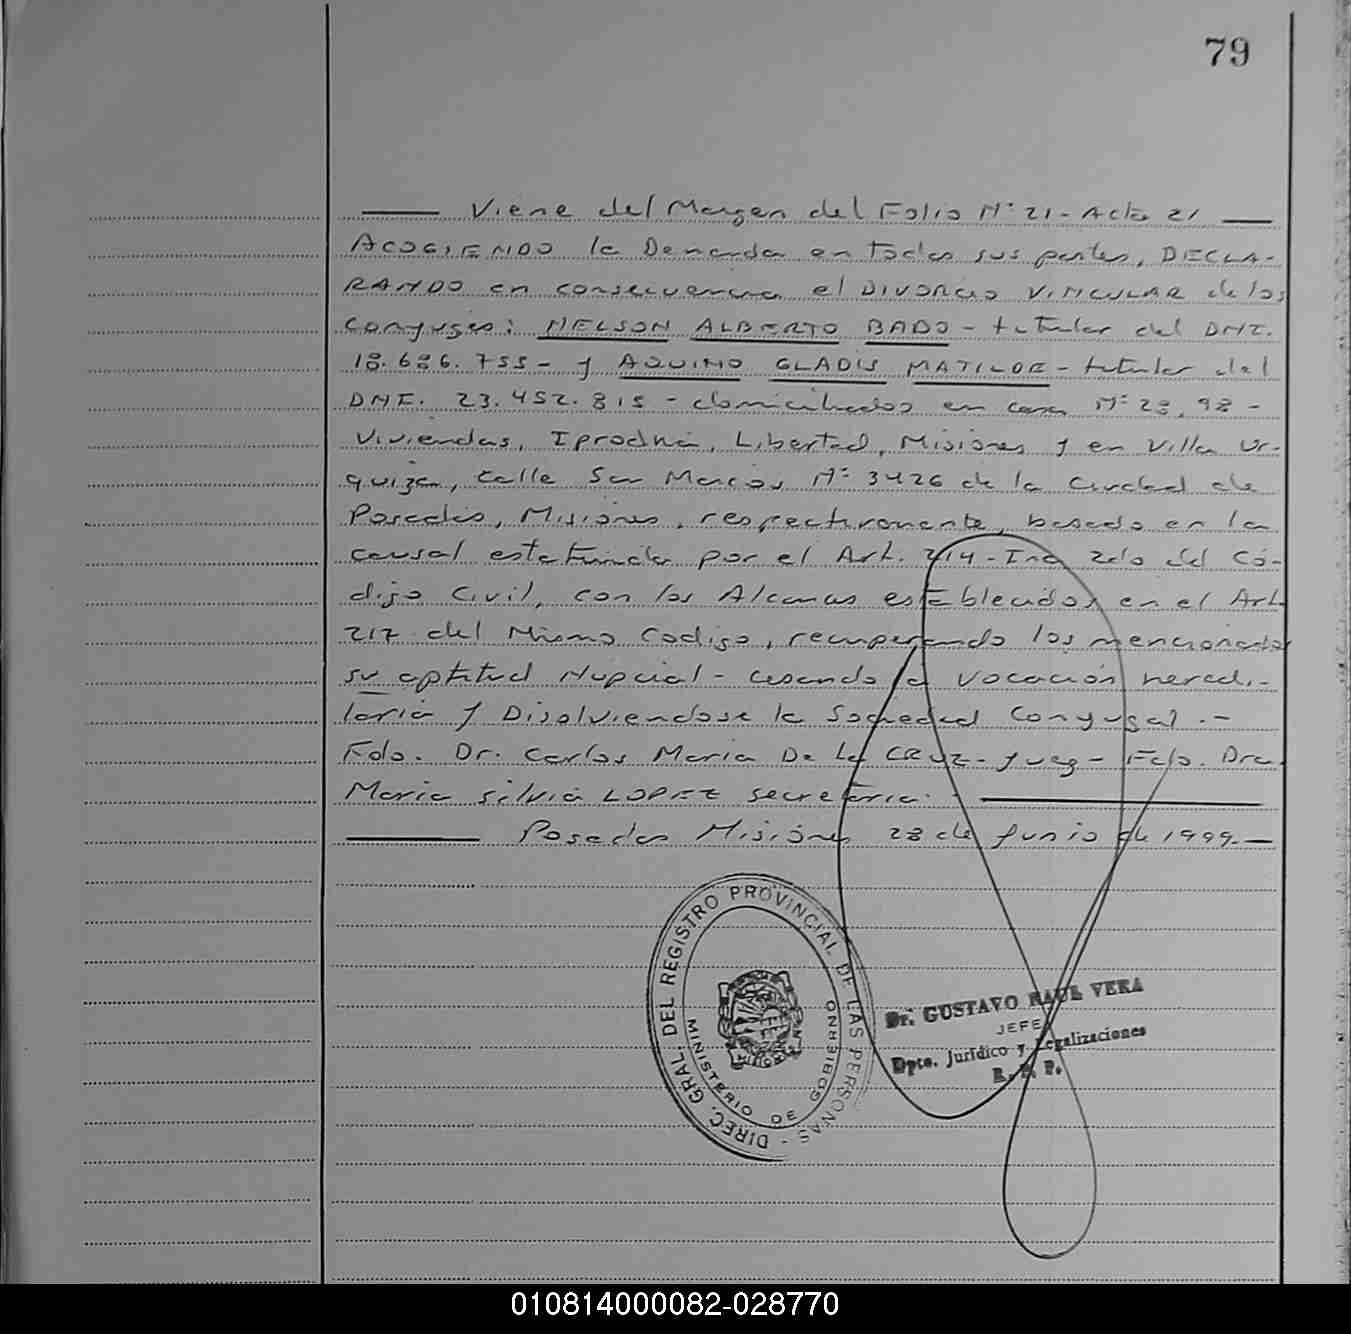 79
Viene del Margen del Folio Nº 21 - Acta 21
ACOGIENDO la Demanda en todas sus partes, DECLA-
RANDO en consecuencia el DIVORCIO VINCULAR de los
Conyuges: NELSON ALBERTO BADO - titular del DNI.
18.686.755 - y AQUINO GLADIS MATILDE - titular del
DNI. 23.452.815 - domiciliados en casa Nº 28, 98 -
Viviendas, Iprodha, Libertad, Misiones y en Villa Ur-
quiza, calle San Marcos Nº 3426 de la Ciudad de
Posadas, Misiones, respectivamente, basado en la
causal estatuida por el Art. 214 - Inc 2do del Có-
digo Civil, con los Alcances establecidos en el Art.
217 del Mismo Codigo, recuperando los mencionados
su aptitud Nupcial - cesando la vocación heredi-
taria y Disolviendose la Sociedad Conyugal .-
Fdo. Dr. Carlos Maria De La CRUZ - Juez - Fdo. Dra.
Maria Silvia LOPEZ secretaria.
Posadas Misiones 28 de Junio de 1999.-
DIREC. GRAL. DEL REGISTRO PROVINCIAL DE LAS PERSONAS -
MINISTERIO DE GOBIERNO
Dr. GUSTAVO RAUL VERA
JEFE
Dpto. Jurídico y Legalizaciones
R. P. P.
010814000082-028770